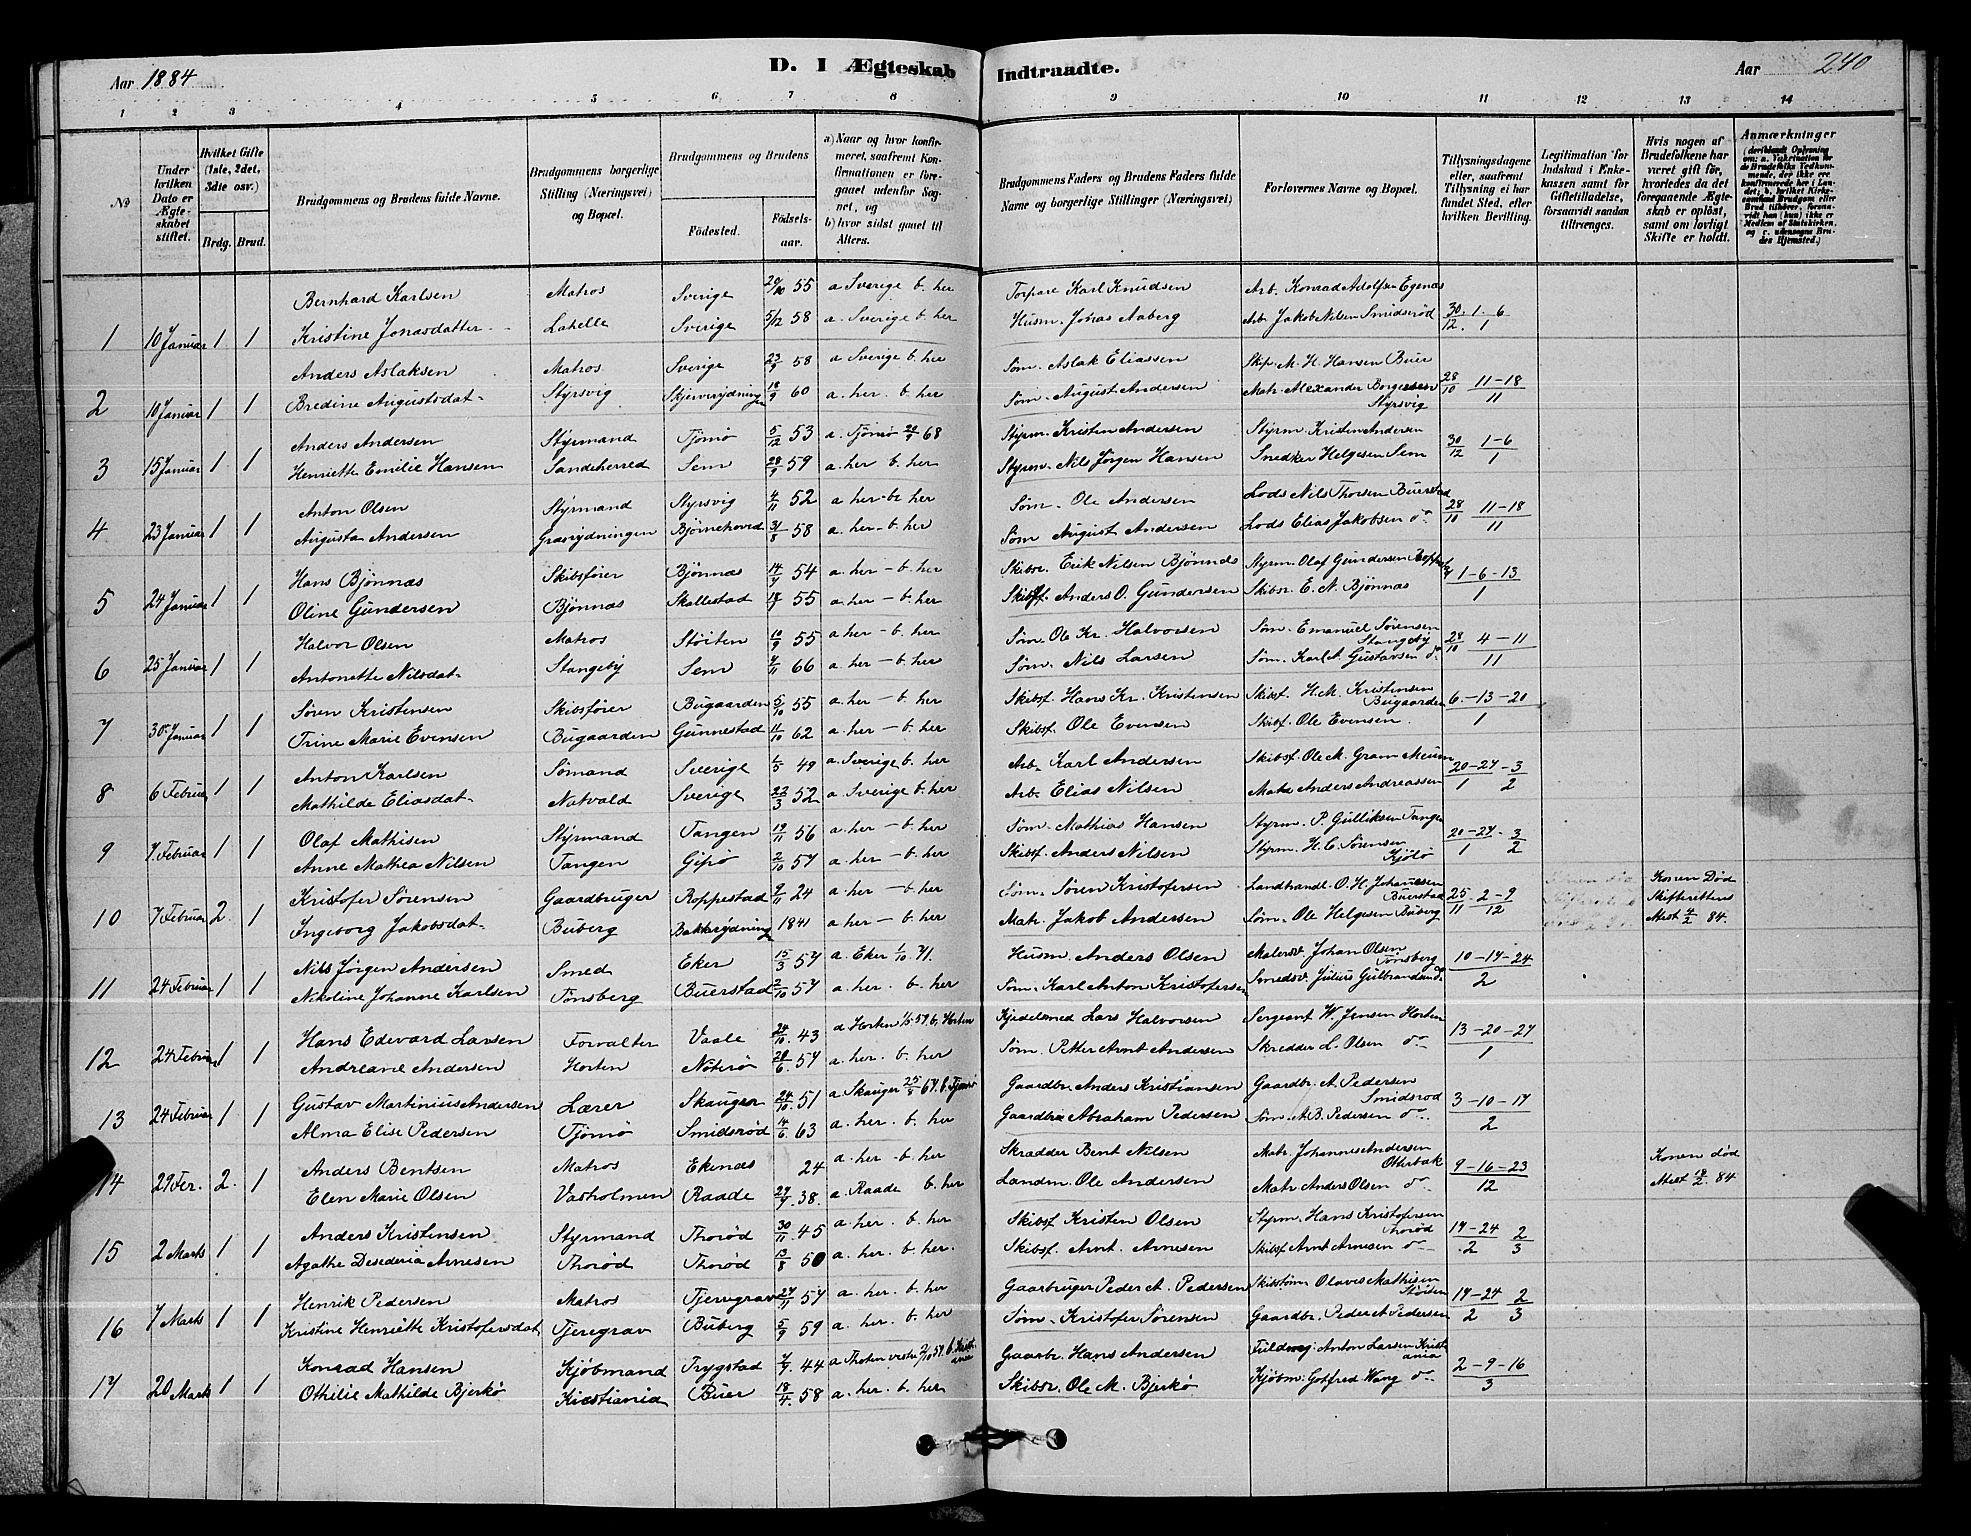 Aar 1884
D. I Ægteskab Indtraadte.
Aar 240
1 2 3 4 5 6 7 8 9 10 11 12 13 14
No
Under hvilken Dato er Ægteskabet stiftet.
Hvilket Gifte (1ste, 2det, 3dte osv.)
Brdg. Brud.
Brudgommens og Brudens fulde Navne.
Brudgommens borgerlige Stilling (Næringsvei) og Bopæl.
Brudgommens og Brudens
Fødested.
Fødselsaar.
a) Naar og hvor konfirmeret, saafremt Konfirmationen er foregaaet udenfor Sognet, og
b) hvor sidst gaaet til Alters.
Brudgommens Faders og Brudens Faders fulde Navne og borgerlige Stillinger (Næringsvei)
Forlovernes Navne og Bopæl.
Tillysningsdagene eller, saafremt Tillysning ei har fundet Sted, efter hvilken Bevilling.
Legitimation for Indskud i Enkekassen samt for Giftetilladelse, forsaavidt saadan tiltrænges.
Hvis nogen af Brudefolkene har været gift før, hvorledes da det foregaaende Ægteskab er opløst, samt om lovligt Skifte er holdt.
Anmærkninger
Bernhard Karlsen Matros Sverige 29/10 55 a Sverige b. her Torpare Karl Knudsen Arb. Konrad Adolfsen Egenæs
1 10 Januar 1 1 Kristine Jonasdatter Lahelle Sverige 5/12 58 a. Sverige b. her Husm. Jonas Aaberg Arb. Jakob Nilsen Smidsrød 30/12. 1-6/1
Anders Aslaksen Matros Sverige 23/9 58 a Sverige b. her Søm. Aslak Eliassen Skip. M. H. Hansen Buer
2 10 Januar 1 1 Bredine Augustsdat- Styrsvig Skjerverydningen 18/9 60 a. her. b. her Søm. August Andersen Matr. Alexander Borgersen Styrsvig 28/10 11-18/11
Anders Andersen Styrmand Tjømø 5/12 53 a. Tjømø 20/9 68 Styrm. Kristen Andersen Styrm. Kristen Andersen
3 15 Januar 1 1 Henriette Emilie Hansen Sandeherred Sem 28/9 59 a. her b. her Styrm. Nils Jørgen Hansen Snedker Helgesen Sem 30/12 1-6/1
Anton Olsen Styrmand Styrsvig 4/11 52 a her - b. her Søm. Ole Andersen Lods Nils Thorsen Buerstad
4 23 Januar 1 1 Augusta Andersen Gravrydningen Bjørnehoved 31/8 58 a. her - b. her Søm August Andersen Lods Elias Jakobsen do 28/10 11-18/11
Hans Bjønnæs Skibsfører Bjønnæs 14/7 54 a. her - b. her Skibsr. Erik Nilsen Bjønnæs Styrm. Olaf Gundersen
5 24 Januar 1 1 Oline Gundersen Bjønnæs Skallestad 18/7 55 a. her - b. her Skibsf. Anders O. Gundersen Skibsr. E. N. Bjønnæs 1-6-13/1
Halvor Olsen Matros Støiten 10/9 55 a her - b. her Søm. Ole Kr. Halvorsen Søm. Emanuel Sørensen Stangeby
6 25 Januar 1 1 Antonette Nilsdat- Stangeby Sem 7/11 66 a. her - b. her Søm. Nils Larsen Søm. Karl A. Gustavsen do 28/10 4-11/11
Søren Kristensen Skibsfører Bugaarden 5/10 55 a. her - b. her Skibsf. Hans Kr. Kristensen Skibsf. H. M. Kristensen Bugaarden
7 30 Januar 1 1 Trine Marie Evensen Bugaarden Gunnestad 11/10 62 a. her - b. her Skibsf. Ole Evensen Skibsf. Ole Evensen. 6-13-20/1
Anton Karlsen Sømand Sverige 1/5 49 a. Sverige b. her Arb. Karl Andersen Skibsf. Ole M. Gram Meum
8 6 Februar 1 1 Mathilde Eliasdat- Natvald Sverige 22/3 52 a. Sverige b. her Arb. Elias Nilsen Matr Anders Andreassen 20-27/1 - 3/2
Olaf Mathisen Styrmand Tangen 19/11 56 a. her - b. her Søm. Mathias Hansen Styrm. P. Gulliksen Tangen
9 7. Februar 1 1 Anne Mathea Nilsen Tangen Gipø 2/10 57 a. her - b. her Skibsf. Anders Nilsen Styrm. H. C. Sørensen Kjøle 20-27/1 - 3/2
Kristofer Sørensen Gaardbruger Roppestad 7/11 24 a. her - b. her Søm. Søren Kristofersen Landhandl. O. H. Johannesen Buerstad Konen Død
10 7 Februar 2. 1 Ingeborg Jakobsdat- Buberg Bakkerydning 1841 a. her - b. her Matr. Jakob Andersen Søm. Ole Helgesen Buberg 25/11 - 2-9/12 Skifterettens Attest 4/2 84.
Nils Jørgen Andersen Smed Eker 15/3 57 a. Eker 1/10 71. Husm. Anders Olsen Malersv. Johan Olsen Tønsberg
11 24 Februar 1 1 Nikoline Johanne Karlsen Tønsberg Buerstad 2/10 57 a. her. b. her Søm. Karl Anton Kristofersen Smedsv. Julius Gulbrandsen do 10-17-24/2
Hans Edevard Larsen Forvalter Vaale 24/10. 43 a Horten 1/5 59 b. Horten Kjedelsmed Lars Halvorsen Sergeant W. Jensen Horten
12 24 Februar 1 1 Andreane Andersen Horten Nøterø 28/6. 57 a. her. b. her Søm. Petter Arnt Andersen Skredder L. Olsen do 13-20-27/1
Gustav Martinius Andersen Lærer Skauger 24/10. 51 a. Skauger 25/8 67. b. Tjømø Gaardbr. Anders Kristiansen Gaardbr. A. Pedersen Smidsrød
13 24 Februar 1 1 Alma Elise Pedersen Tjømø Smidsrød 14/6. 63 a. her. b. her Gaardbr. Abraham Pedersen Søm. A. B. Pedersen do 3-10-17/2
Anders Bentsen Matros Ekenæs 24 a. her - b. her Skrædder Bent Nilsen Matr. Johannes Andersen Otterbæk Konen død
14 29 Fer. 2. 1 Elen Marie Olsen Vasholmen Raade 27/7. 38. a. Raade b. her Landm. Ole Andersen Matr Anders Olsen do 9-16-23/12 Attest 18/2. 84
Anders Kristensen Styrmand Thorød 30/11. 45 a. her. b. her Skibsf Kristen Olsen Styrm. Hans Kristofersen Thorød
15 2 Marts 1 1 Agathe Desederia Arnesen Thorød Thorød 13/8 50 a. her. b. her. Skibsf. Arnt. Arnesen Skibsf Arnt Arnesen do 17-24/2 2/3
Henrik Pedersen Matros Tjeregrav 27/11 57 a. her. b. her Gaarbruger Peder A. Pedersen Skibstøm. Olaves Mathisen Støiten
16 7 Marts 1 1 Kristine Henriette Kristofersdat Tjeregrav Buberg 5/9 59 a. her. b. her Søm. Kristofer Sørensen Gaardbr. Peder A Pedersen 17-24/2 2/3
Konrad Hansen Kjøbmand Trygstad 7/7. 44 a Thoten vestre 2/10 59. b. Kristiania Gaarbr. Hans Andersen Fuldmæg. Anton Larsen Kristiania
17 20 Marts 1 1 Othilie Mathilde Bjerkø Kristiania Buer 18/4. 58 a. her. b. her Skibsr. Ole M. Bjerkø Kjøbm. Gotfred Wang do 2-9-16/3